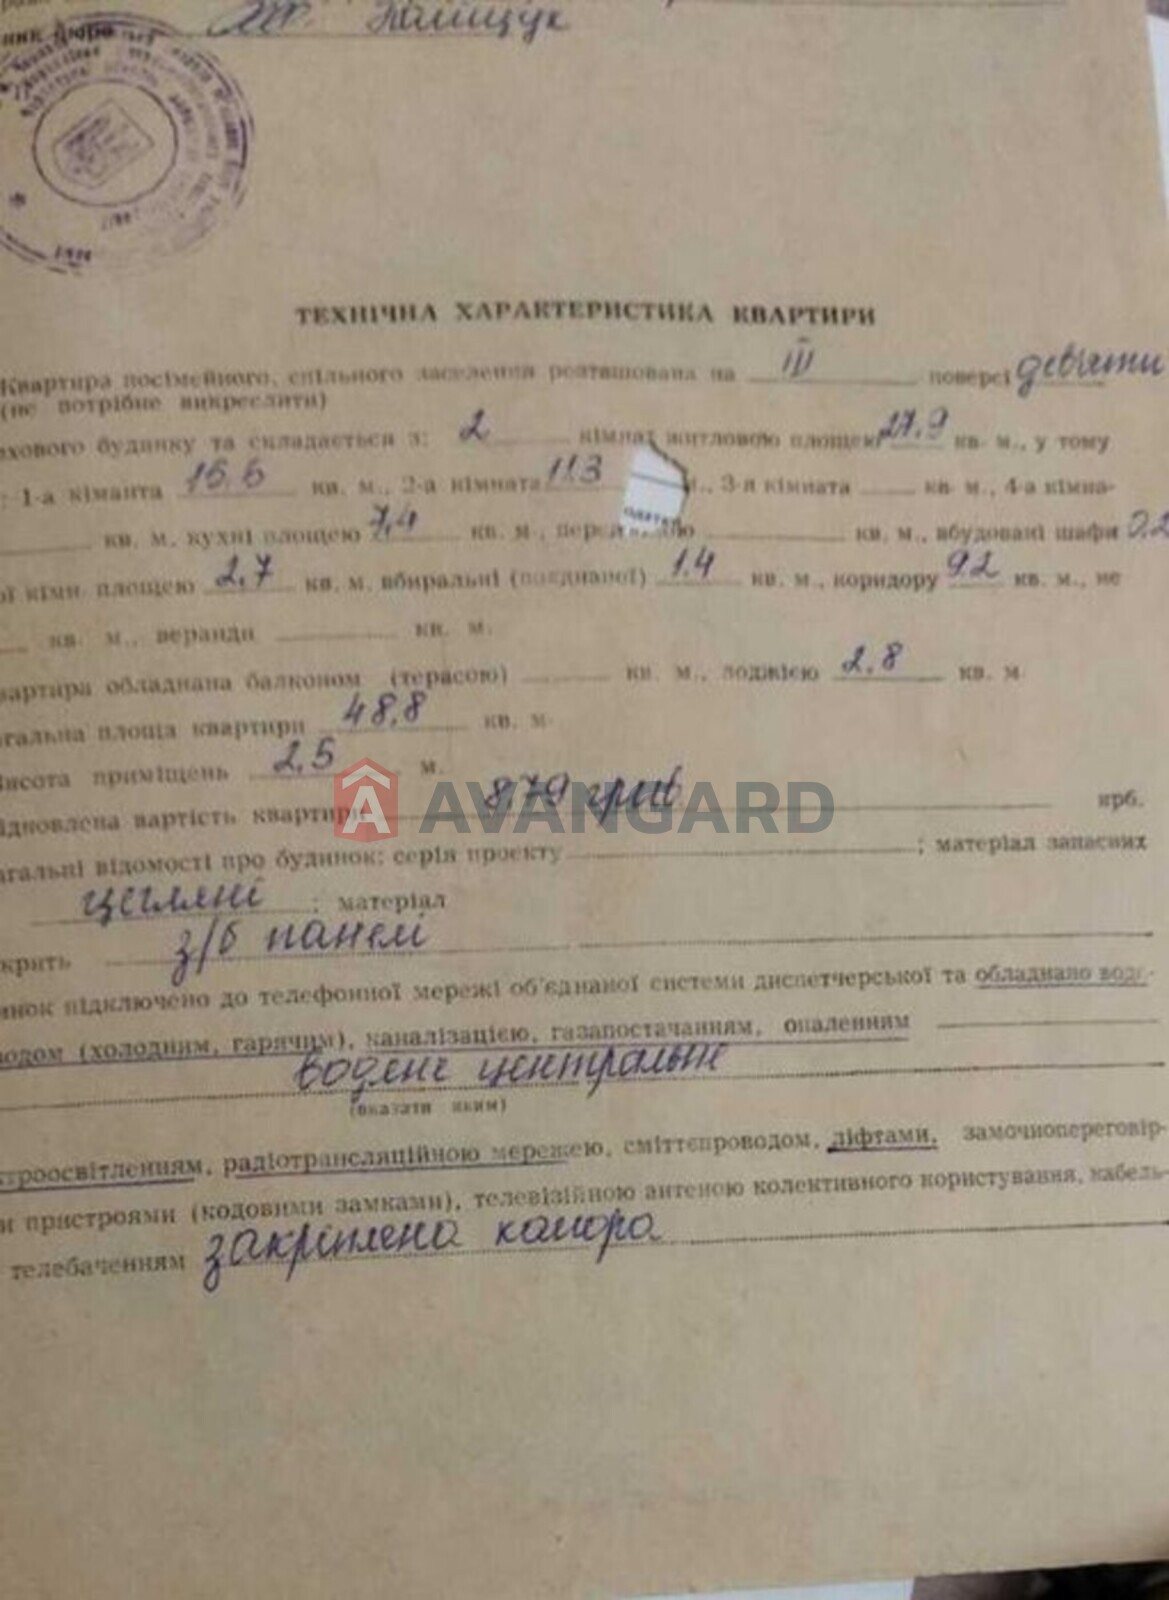 ник бюро Поліщук
ТЕХНІЧНА ХАРАКТЕРИСТИКА КВАРТИРИ
Квартира посімейного, спільного заселення розташована на III поверсі девʼяти
(не потрібне викреслити)
хового будинку та складається з: 2 кімнат житловою площею 27,9 кв. м., у тому
: 1-а кімната 16.6 кв. м., 2-а кімната 11.3 м., 3-я кімната кв. м., 4-а кімна-
кв. м, кухні площею 7,4 кв. м., кв. м., вбудовані шафи 0.2
ої кімн. площею 2,7 кв. м, вбиральні (поєднаної) 1.4 кв. м., коридору 9.2 кв. м., не
кв. м., веранди кв. м.
вартира обладнана балконом (терасою) кв. м., лоджією 2,8 кв. м.
гальна площа квартири 48,8 кв. м.
исота приміщень 2,5 м.
ідновлена вартість квартири 879 грив крб.
AVANGARD
агальні відомості про будинок: серія проєкту ; матеріал запасних
цегляні ; матеріал
крить з/б панелі
инок підключено до телефонної мережі об'єднаної системи диспетчерської та обладнано водо-
водом (холодним, гарячим), каналізацією, газапостачанням, опаленням
водяне центральне
(вказати яким)
ктроосвітленням, радіотрансляційною мережею, сміттєпроводом, ліфтами, замочнопереговір-
и пристроями (кодовими замками), телевізійною антеною колективного користування, кабель-
телебаченням закріплена комора